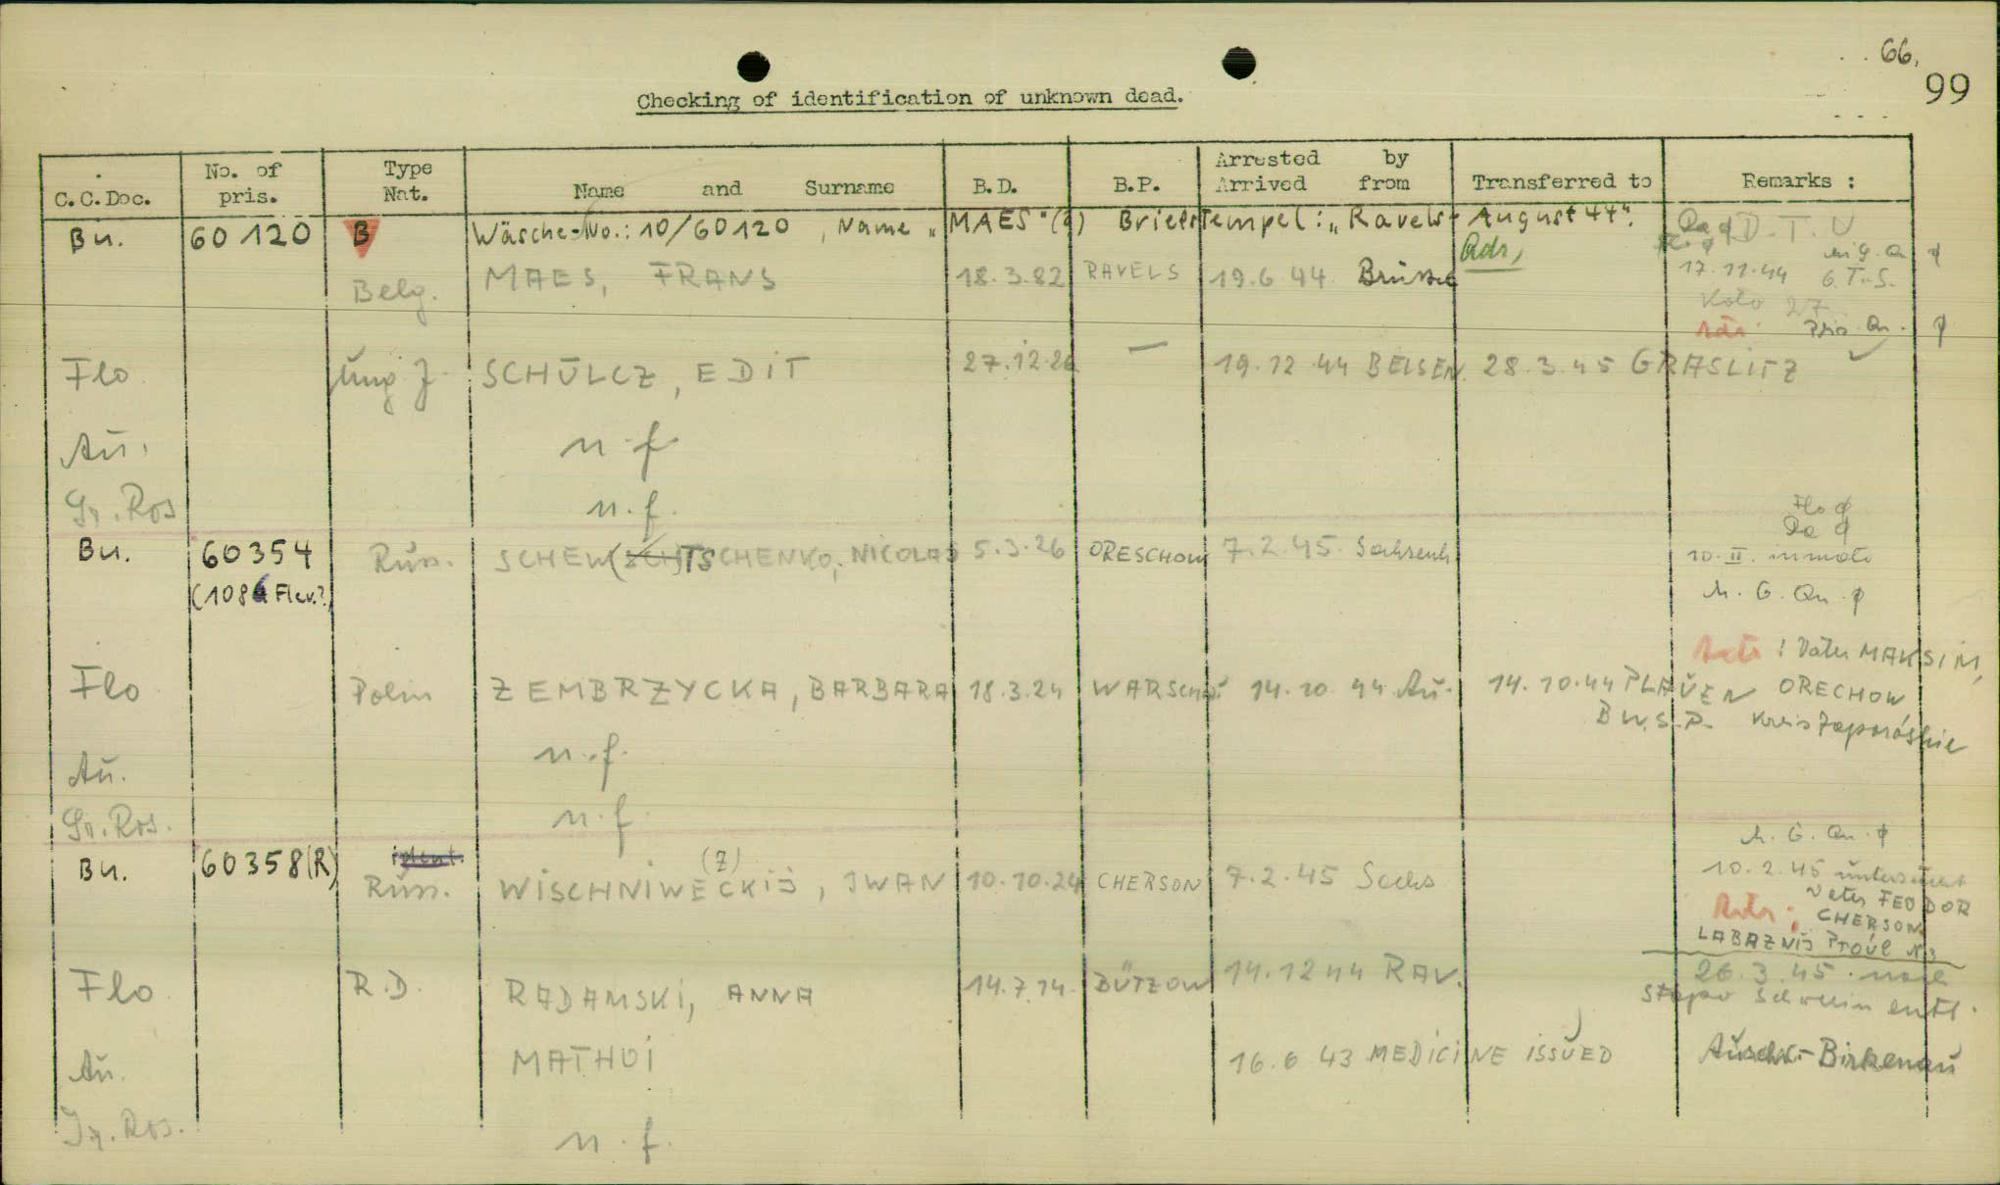 66.
99
Checking of identification of unknown dead.
C.C.Doc. No. of pris. Type Nat. Name and Surname B.D. B.P. Arrested by Arrived from Transferred to Remarks :
Bu. 60120 B Wäsche-No.: 10/60120, Name „MAES" (?) Briefstempel: „Ravels - August 44".
Adr,
Belg. MAES, FRANS 18.3.82 RAVELS 19.6.44 Brüssel 17.11.44 G.T.S.
Flo Ung. J. SCHÜLCZ, EDIT 27.12.26 — 19.12.44 BELSEN 28.3.45 GRASLITZ
Au. n.f.
Gr. Ros n.f.
Flo ϕ
Da ϕ
Bu. 60354 Russ. SCHEW(SCH)TSCHENKO, NICOLAS 5.3.26 ORESCHOW 7.2.45 Sachsenh. 10.II.
M. G. Qu. ϕ
: Vater MAKSIM,
Flo Polin ZEMBRZYCKA, BARBARA 18.3.24 WARSCHAU 14.10.44 Au. 14.10.44 PLAUEN ORECHOW
Kreis
Au. n.f.
Gr. Ros. n.f.
M. G. Qu. ϕ
Bu. 60358(R) ident. Russ. WISCHNIWECKIJ (Z), IWAN 10.10.24 CHERSON 7.2.45 Sachs 10.2.45
Vater FEODOR
CHERSON
LABAZNIJ
Flo R.D. RADAMSKI, ANNA 14.7.14 BÜTZOW 14.12 44 RAV. 26.3.45 nach
Stapo Schwerin entl.
Au. MATHUI 16.6 43 MEDICINE ISSUED Auschw.-Birkenau
Gr. Ros. n.f.